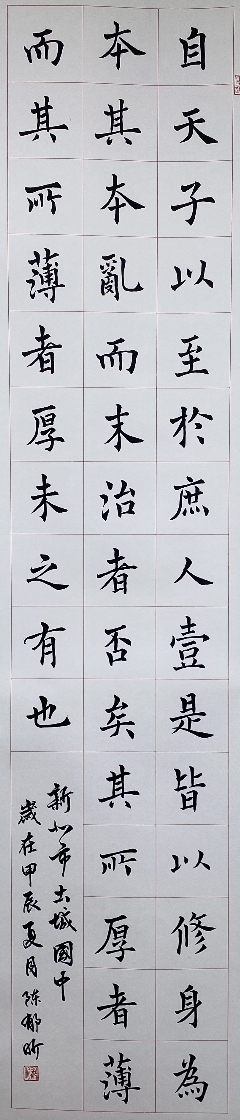 自天子以至於庶人壹是皆以修身為
本其本亂而末治者否矣其所厚者薄
而其所薄者厚未之有也
新北市土城國中
歲在甲辰夏月陳郁昕